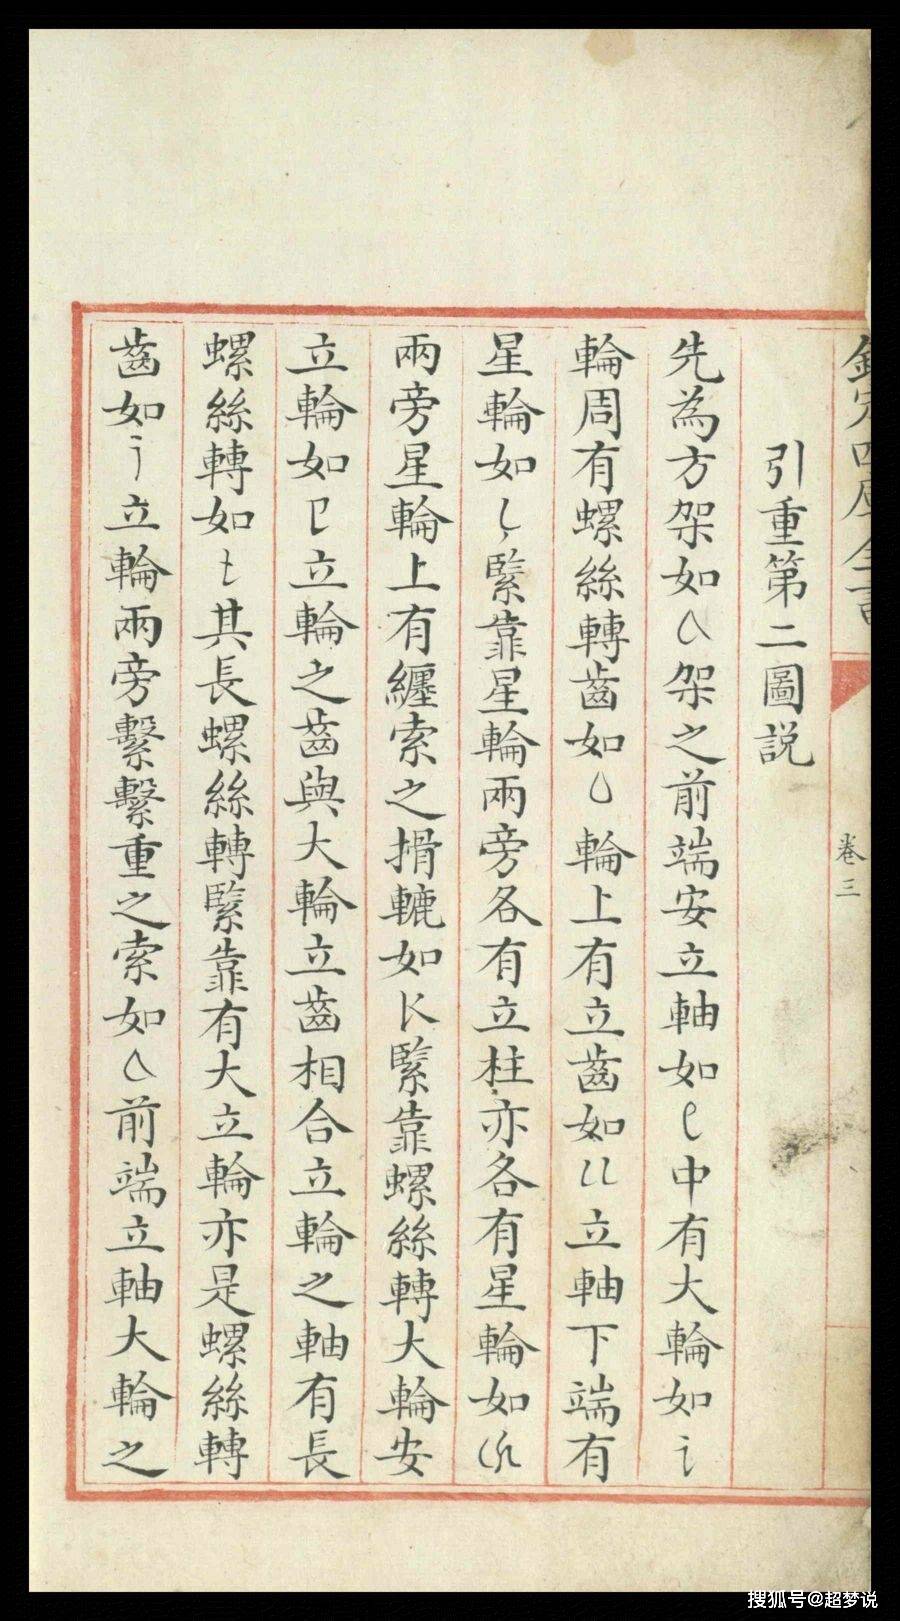 欽定四庫全書
卷三
引重第二圖説
先為方架如㇏架之前端安立軸如中有大輪如
輪周有螺絲轉齒如輪上有立齒如立軸下端有
星輪如緊靠星輪兩旁各有立柱亦各有星輪如
兩旁星輪上有纏索之搰轆如緊靠螺絲轉大輪安
立輪如立輪之齒與大輪立齒相合立輪之軸有長
螺絲轉如其長螺絲轉緊靠有大立輪亦是螺絲轉
齒如立輪兩旁繫繫重之索如前端立軸大輪之
搜狐号@超梦说